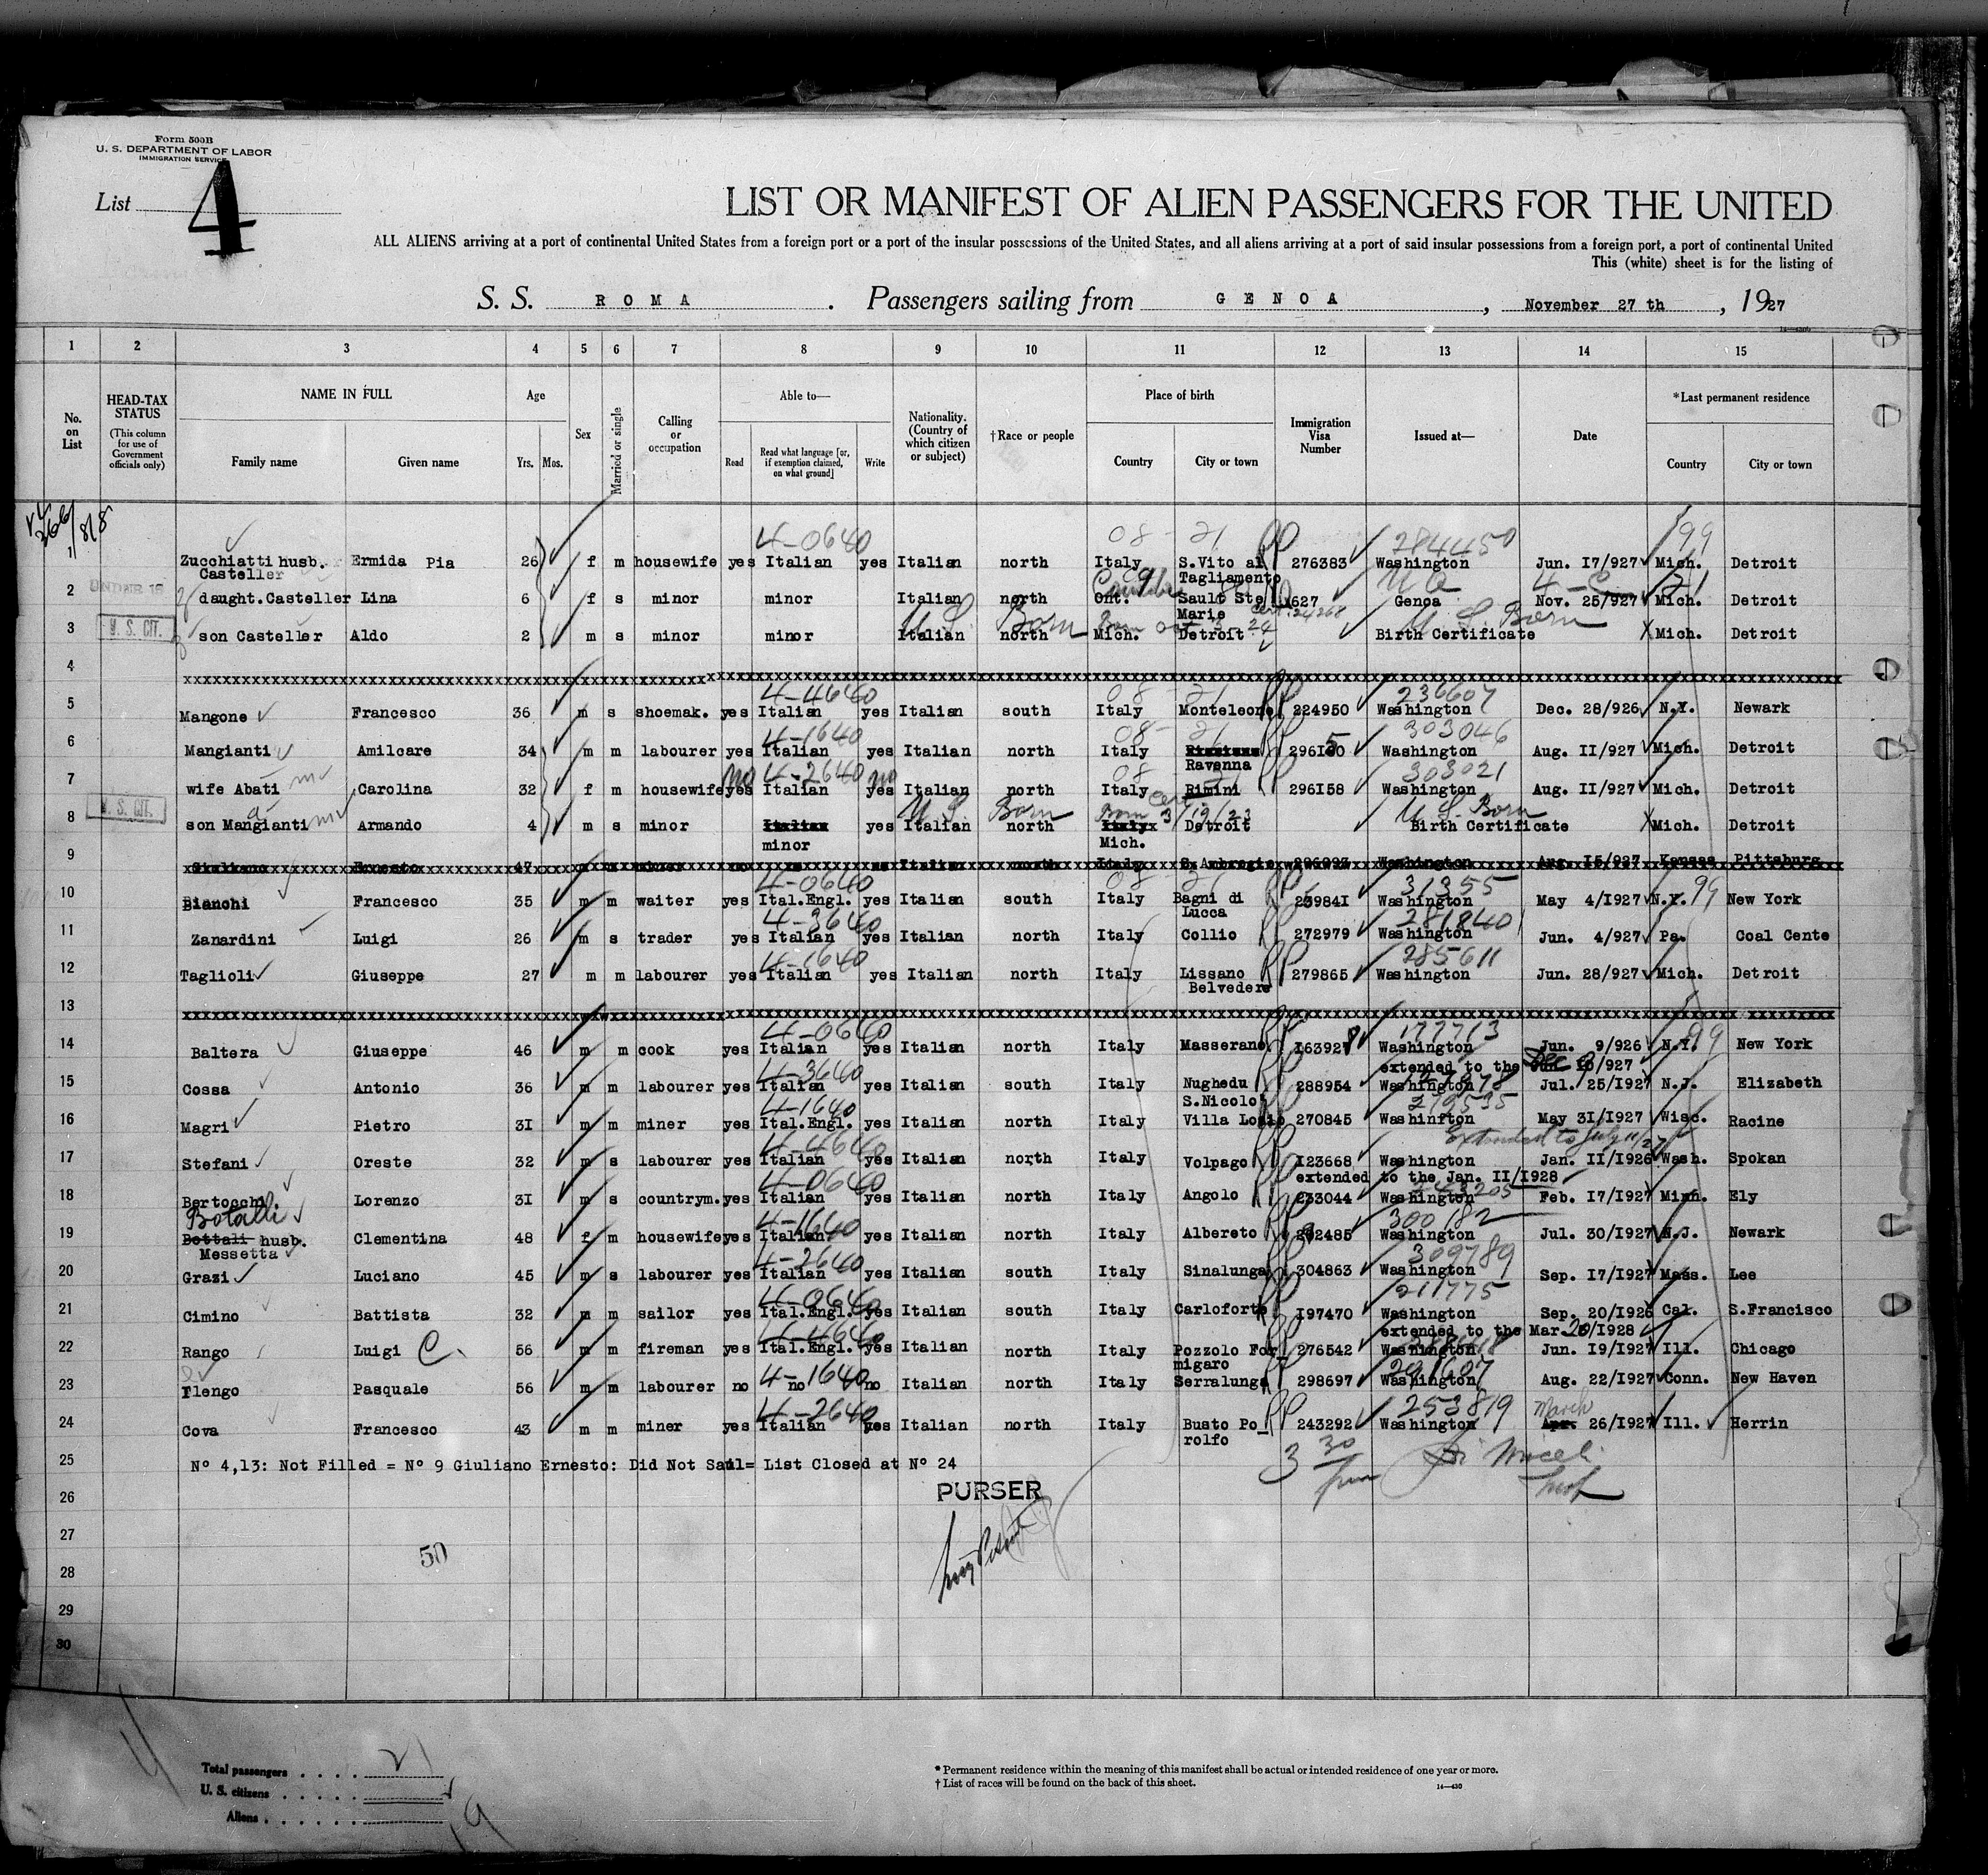 Form 500B
U. S. DEPARTMENT OF LABOR
IMMIGRATION SERVICE
List 4
LIST OR MANIFEST OF ALIEN PASSENGERS FOR THE UNITED
ALL ALIENS arriving at a port of continental United States from a foreign port or a port of the insular possessions of the United States, and all aliens arriving at a port of said insular possessions from a foreign port, a port of continental United
This (white) sheet is for the listing of
S. S. ROMA . Passengers sailing from GENOA , November 27 th , 1927
1 2 3 4 5 6 7 8 9 10 11 12 13 14 15
No. on List
HEAD-TAX STATUS
(This column for use of Government officials only)
NAME IN FULL
Family name Given name
Age
Yrs. Mos.
Sex
Married or single
Calling or occupation
Able to—
Read
Read what language [or, if exemption claimed, on what ground]
Write
Nationality. (Country of which citizen or subject)
†Race or people
Place of birth
Country City or town
Immigration Visa Number
Issued at—
Date
*Last permanent residence
Country City or town
4-0640 08 - 21 284450 99
1 Zucchiatti husb. Ermida Pia 26 f m housewife yes Italian yes Italian north Italy S.Vito al 276383 Washington Jun. I7/927 Mich. Detroit
Casteller Tagliamento
2 UNDER 16 daught.Casteller Lina 6 f s minor minor Italian north Ont. Sault Ste 1627 Genoa Nov. 25/927 Mich. Detroit
Marie
U.S. Born U.S. Born
3 U.S. CIT. son Casteller Aldo 2 m s minor minor Italian north Mich. Detroit Birth Certificate Mich. Detroit
4 xxxxxxxxxxxxxxxxxxxxxxxxxxxxxxxx
4-4640 08 - 21 236607
5 Mangone Francesco 36 m s shoemak. yes Italian yes Italian south Italy Monteleone 224950 Washington Dec. 28/926 N.Y. Newark
4-1640 08 - 21 303046
6 Mangianti Amilcare 34 m m labourer yes Italian yes Italian north Italy 296I50 Washington Aug. II/927 Mich. Detroit
Ravenna
no 4-2640 no 08 - 21 303021
7 wife Abati Carolina 32 f m housewife yes Italian yes Italian north Italy Rimini 296I58 Washington Aug. II/927 Mich. Detroit
U.S. Born Born 3/19/23 U.S. Born
8 U.S. CIT. son Mangianti Armando 4 m s minor Italian yes Italian north Italy Detroit Birth Certificate Mich. Detroit
minor Mich.
9 Giuliano Ernesto 47 m m miner no no no Italian north Italy S.Ambrogio Washington Aug. I5/927 Kansas Pittsburg
4-0640 08 - 21 31355 99
10 Bianchi Francesco 35 m m waiter yes Ital.Engl. yes Italian south Italy Bagni di 239841 Washington May 4/I927 N.Y. New York
Lucca
4-3640 281840
11 Zanardini Luigi 26 m s trader yes Italian yes Italian north Italy Collio 272979 Washington Jun. 4/927 Pa. Coal Cente
4-1640 285611
12 Taglioli Giuseppe 27 m m labourer yes Italian yes Italian north Italy Lissano 279865 Washington Jun. 28/927 Mich. Detroit
Belvedere
13 xxxxxxxxxxxxxxxxxxxxxxxxxxxxxxxx
4-0640 177713 99
14 Baltera Giuseppe 46 m m cook yes Italian yes Italian north Italy Masserano I63928 Washington Jun. 9/926 N.Y. New York
extended to the Dec /927
4-3640
15 Cossa Antonio 36 m m labourer yes Italian yes Italian south Italy Nughedu 288954 Washington Jul. 25/I927 N.J. Elizabeth
S.Nicolo
4-1640 279535
16 Magri Pietro 3I m m miner yes Ital.Engl. yes Italian north Italy Villa 270845 Washinfton May 3I/I927 Wisc. Racine
4-4640 Extended to July 11/27
17 Stefani Oreste 32 m s labourer yes Italian yes Italian north Italy Volpago I23668 Washington Jan. II/I926 Wash. Spokan
extended to the Jan. II/I928
4-0640 243205
18 Bertocchi Lorenzo 3I m s countrym. yes Italian yes Italian north Italy Angolo 233044 Washington Feb. I7/I927 Minn. Ely
Botalli 4-1640 300182
19 Bottali husb. Clementina 48 f m housewife yes Italian yes Italian north Italy Albereto 292485 Washington Jul. 30/I927 N.J. Newark
Messetta
4-2640 309789
20 Grazi Luciano 45 m s labourer yes Italian yes Italian south Italy Sinalunga 304863 Washington Sep. I7/I927 Mass. Lee
4-0640 211775
21 Cimino Battista 32 m m sailor yes Ital.Engl. yes Italian south Italy Carloforte I97470 Washington Sep. 20/I926 Cal. S.Francisco
extended to the Mar. 20/I928
4-4640
22 Rango Luigi C. 56 m m fireman yes Ital.Engl. yes Italian north Italy Pozzolo For_ 276542 Washington Jun. I9/I927 Ill. Chicago
migaro
4-1640 291607
23 Flengo Pasquale 56 m m labourer no no no Italian north Italy Serralunga 298697 Washington Aug. 22/I927 Conn. New Haven
4-2640 253819 March
24 Cova Francesco 43 m m miner yes Italian yes Italian north Italy Busto Po_ 243292 Washington Apr. 26/I927 Ill. Herrin
rolfo
25 Nº 4,13: Not Filled = Nº 9 Giuliano Ernesto: Did Not Sail= List Closed at Nº 24
3 30
26 PURSER
27
28 50
29
30
Total passengers . . . . 21
U. S. citizens . . . . .
Aliens . . . . . . 19
* Permanent residence within the meaning of this manifest shall be actual or intended residence of one year or more.
† List of races will be found on the back of this sheet.
14—430